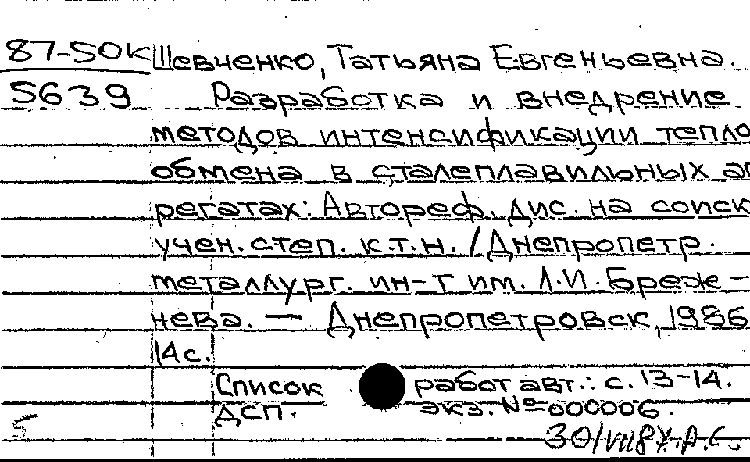 87-50к Шевченко, Татьяна Евгеньевна.
5639 Разработка и внедрение
методов интенсификации тепло
обмена в сталеплавильных аг
регатах: Автореф. дис. на соиск
учен. степ. к.т.н. / Днепропетр.
металлург. ин-т им. Л.И. Бреж-
нева. — Днепропетровск, 1986
14 с.
Список работ авт.: с. 13-14.
ДСП. экз. № 000006.